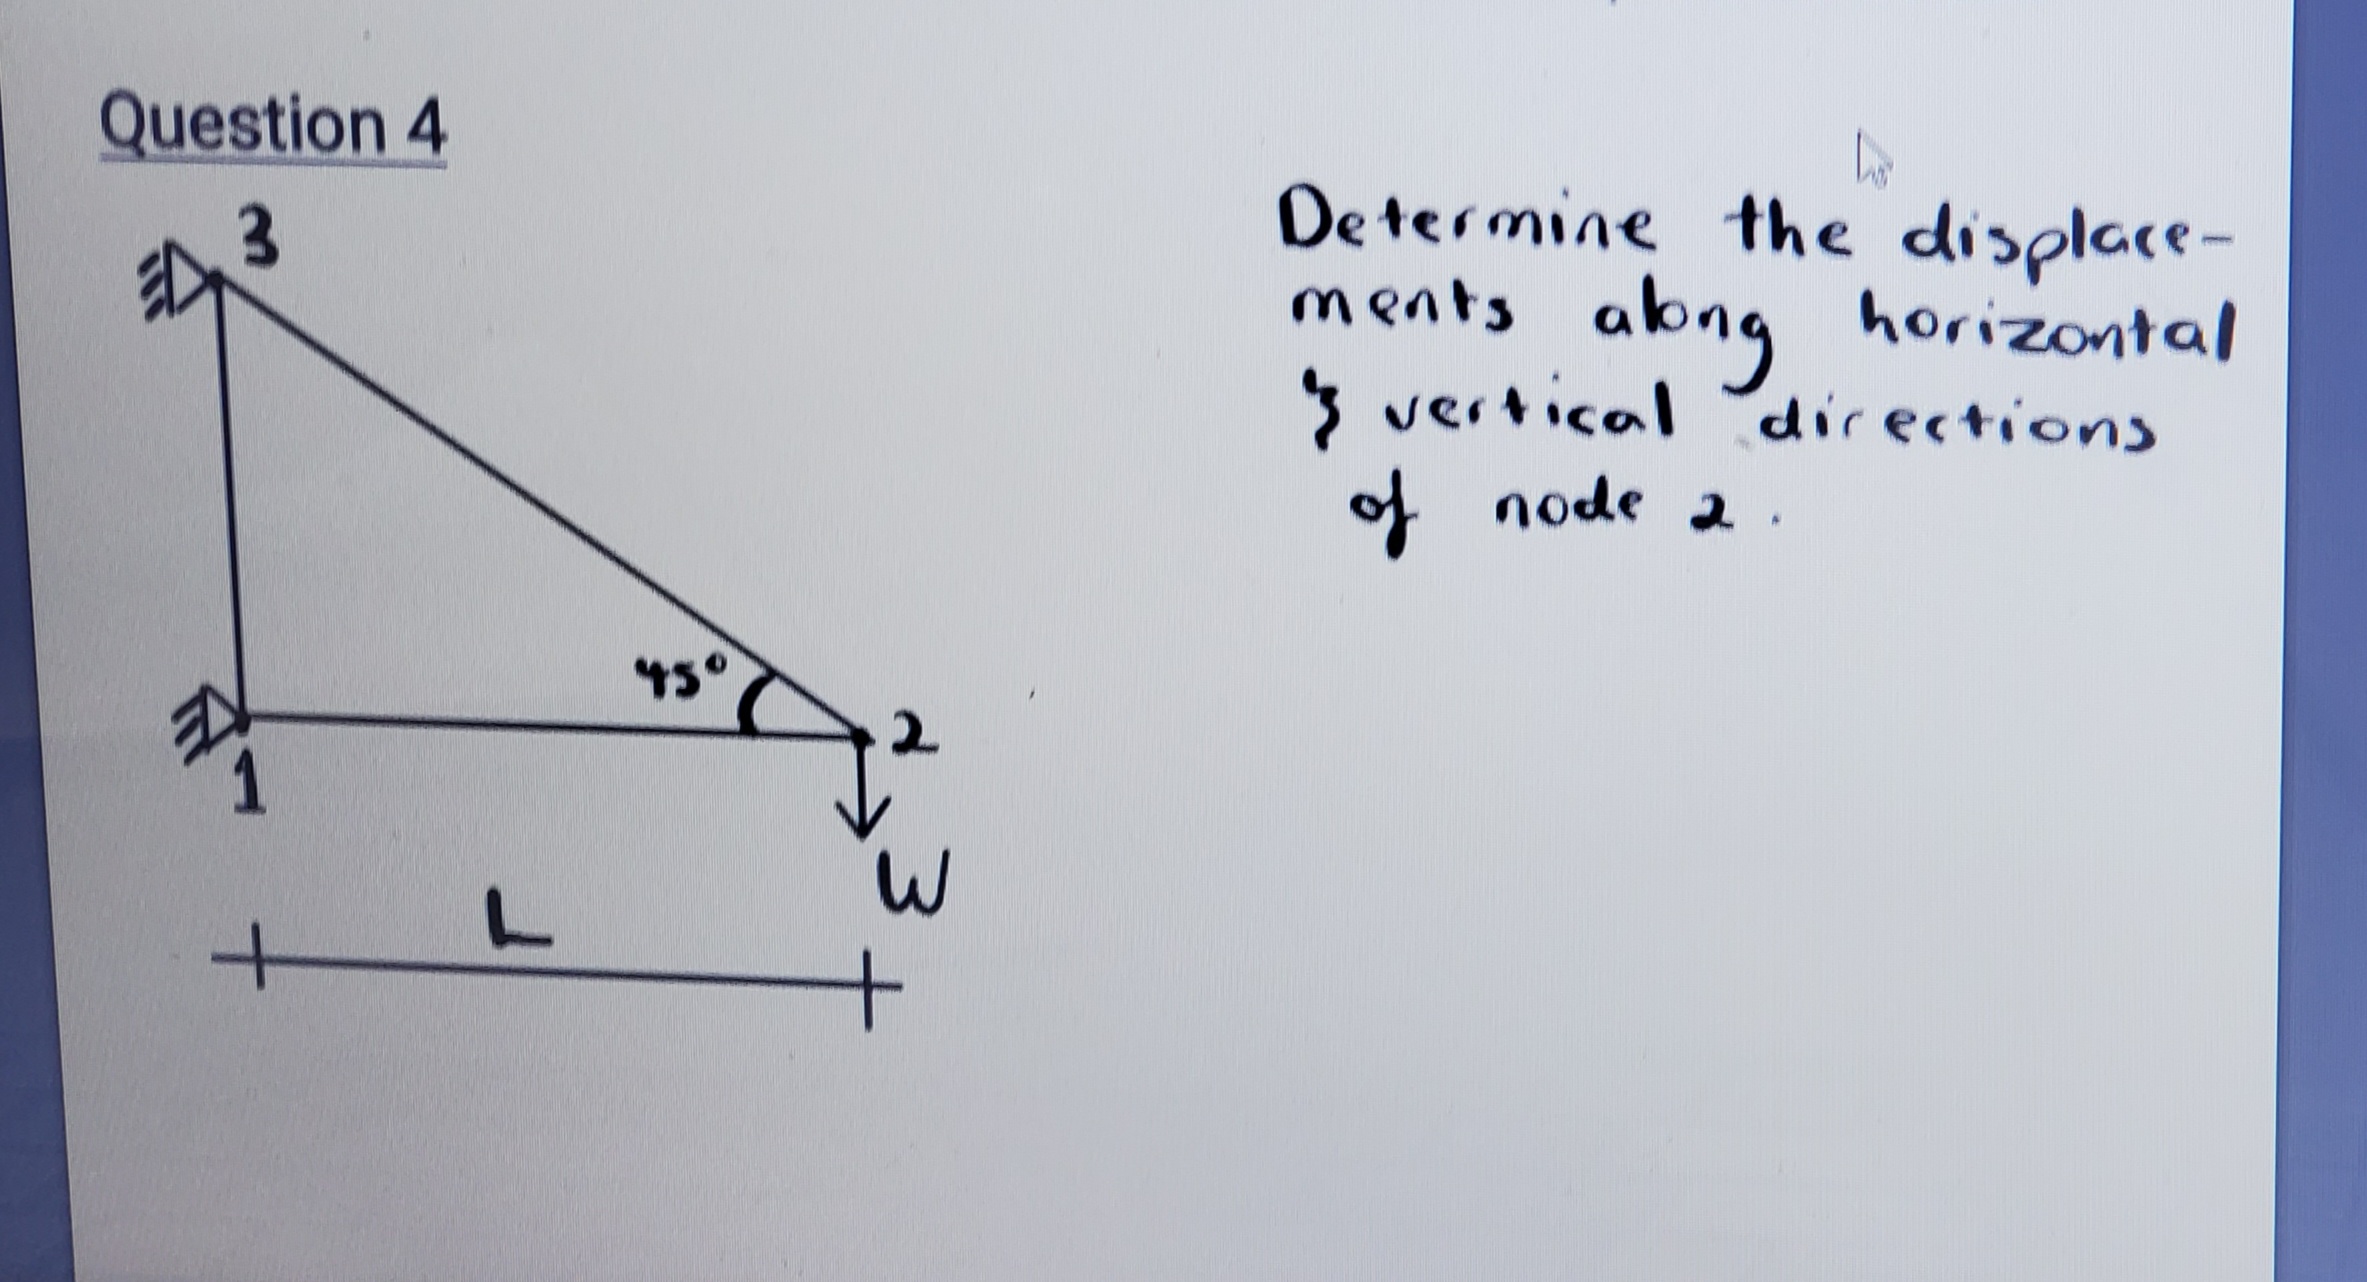 Question 4
3
Determine the displace-
ments along horizontal
& vertical directions
of node 2.
45°
2
1
W
L